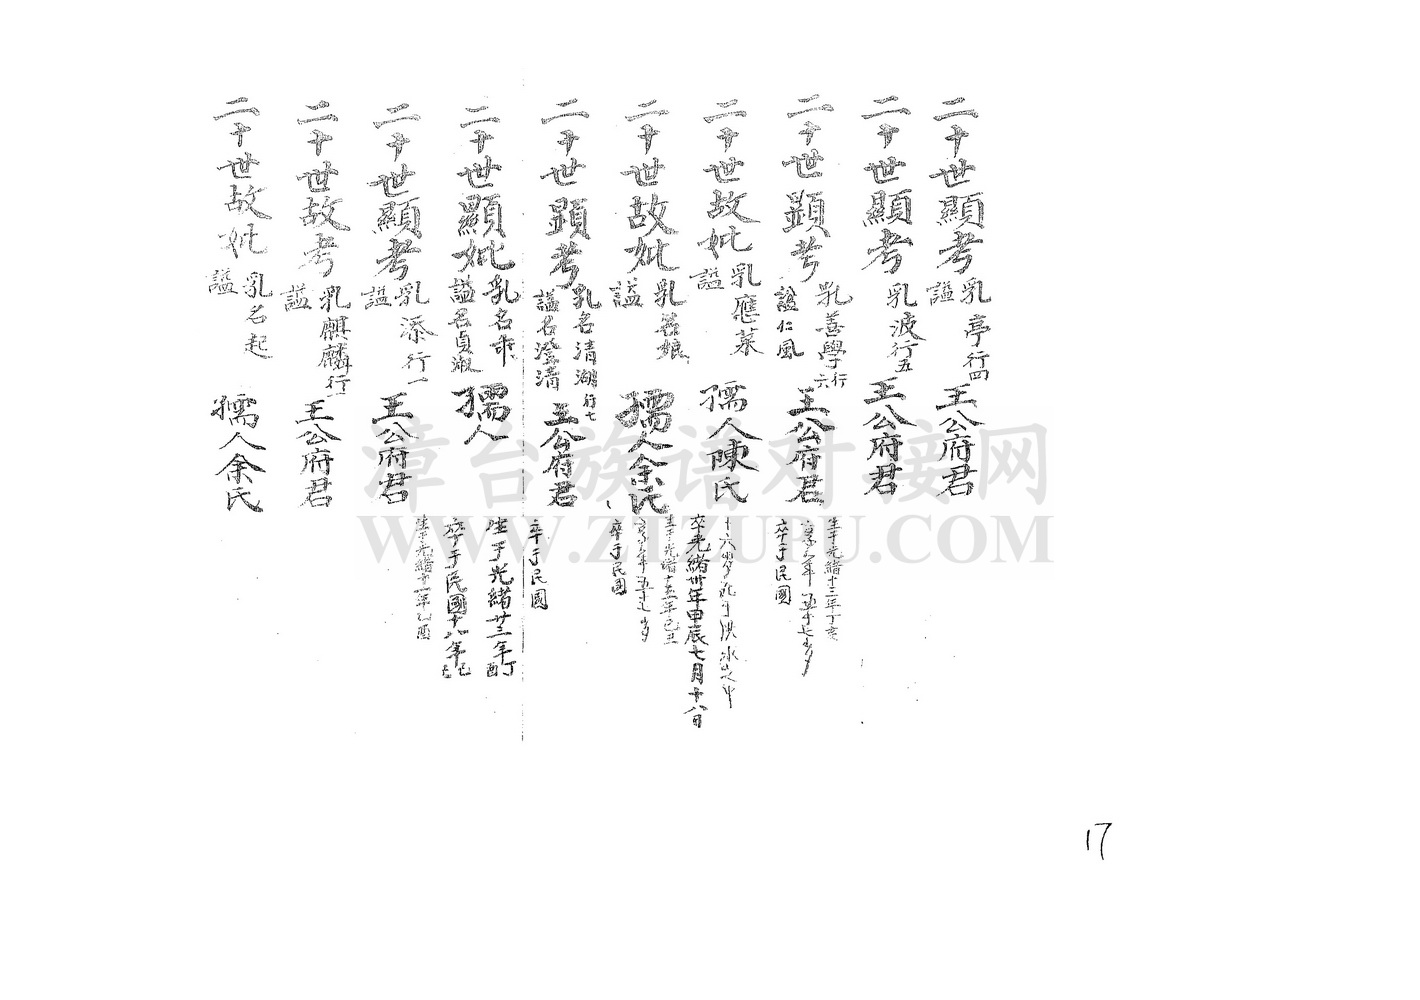 二十世顯考 乳亭行四 諡 王公府君
二十世顯考 乳波行五 王公府君
二十世顯考 乳善學行六 諡仁風 王公府君 生于光緒十三年丁亥 卒于民國
二十世故妣 乳應菜 諡 孺人陳氏 卒光緒卅年甲辰七月十八日
二十世故妣 乳名娘 諡 孺人余氏 生于光緒十五年己丑 卒于民國
二十世顯考 乳名清湖行七 諡名澄清 王公府君 卒于民國
二十世顯妣 乳名 諡名貞淑 孺人 生于光緒廿三年丁酉 卒于民國十八年己巳
二十世顯考 乳添行一 諡 王公府君 生于光緒十一年乙酉
二十世故考 乳麒麟行 諡 王公府君
二十世故妣 乳名起 諡 孺人余氏
漳台族谱对接网
WWW.ZTZUPU.COM
17